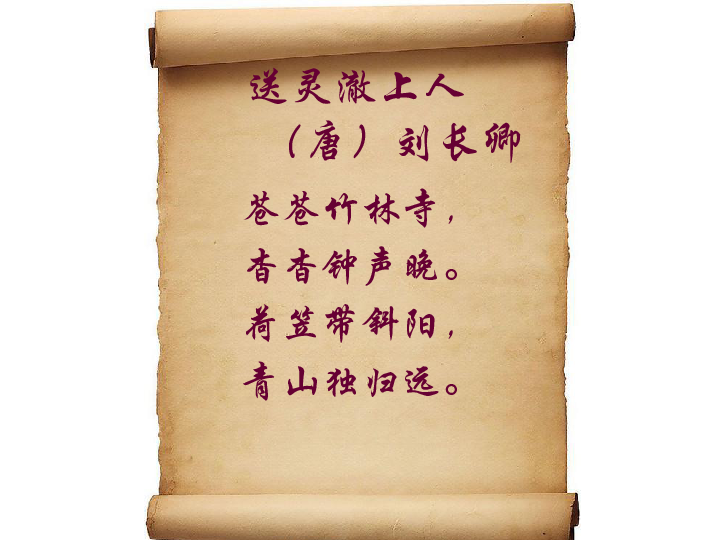 送灵澈上人
（唐）刘长卿
苍苍竹林寺，
杳杳钟声晚。
荷笠带斜阳，
青山独归远。